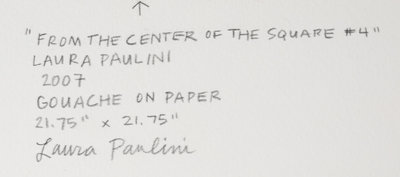 "FROM THE CENTER OF THE SQUARE #4"
LAURA PAULINI
2007
GOUACHE ON PAPER
21.75" x 21.75"
Laura Paulini